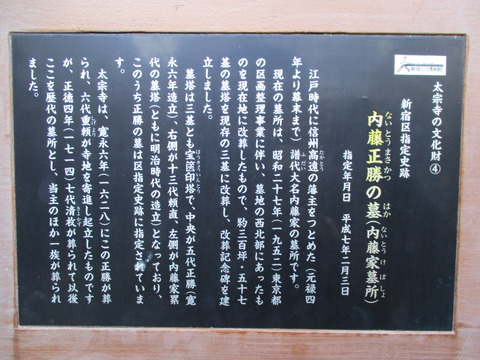 太宗寺の文化財 ④
新宿区指定史跡
ないとうまさかつ はか ないとうけ ぼしょ
内藤正勝の墓(内藤家墓所)
指定年月日 平成七年二月三日
たかとう
江戸時代に信州高遠の藩主をつとめた(元禄四
ふだい
年より幕末まで)譜代大名内藤家の墓所です。
現在の墓所は、昭和二十七年(一九五二)東京都
の区画整理事業に伴い、墓地の西北部にあったも
のを現在地に改葬したもので、約三百坪・五十七
基の墓塔を現存の三基に改葬し、改葬記念碑を建
立しました。
ほうきょういんとう
墓塔は三基とも宝篋印塔で、中央が五代正勝(寛
永六年造立)、右側が十三代頼直、左側が内藤家累
代の墓塔(ともに明治時代の造立)となっており、
このうち正勝の墓は区指定史跡に指定されていま
す。
太宗寺は、寛永六年(一六二八)にこの正勝が葬
しげより
られ、六代重頼が寺地を寄進し起立したものです
きよかず
が、正徳四年(一七一四)七代清枚が葬られて以後
ここを歴代の墓所とし、当主のほか一族が葬られ
ました。